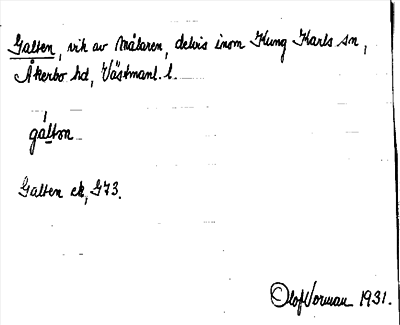 Galten, vik av Mälaren, delvis inom Kung Karls sn,
Åkerbo hd, Västmanl. l.
gáltən
Galten ek, G73.
Olof Vorman 1931.